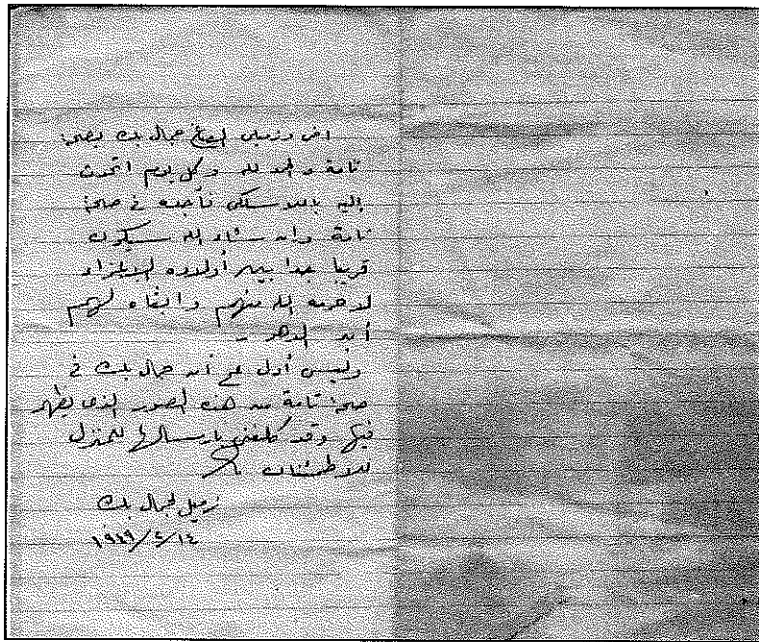 أخى وزميلى الصاغ جمال بك بصحة
تامة والحمد لله وكل يوم اتحدث
إليه باللاسلكى فأجده فى صحة
تامة وان شاء الله سيكون
قريبا جدا بين أولاده الاعزاء
لا حرمه الله منهم وابقاه لهم
أمد الدهر -
وليس أدل على أن جمال بك فى
صحة تامة من هذه الصور الذى يظهر
فيها وقد كلفنى بارسالها للمنزل
للاطمئنان
زميل لجمال بك
١٩٤٩/٢/١٤